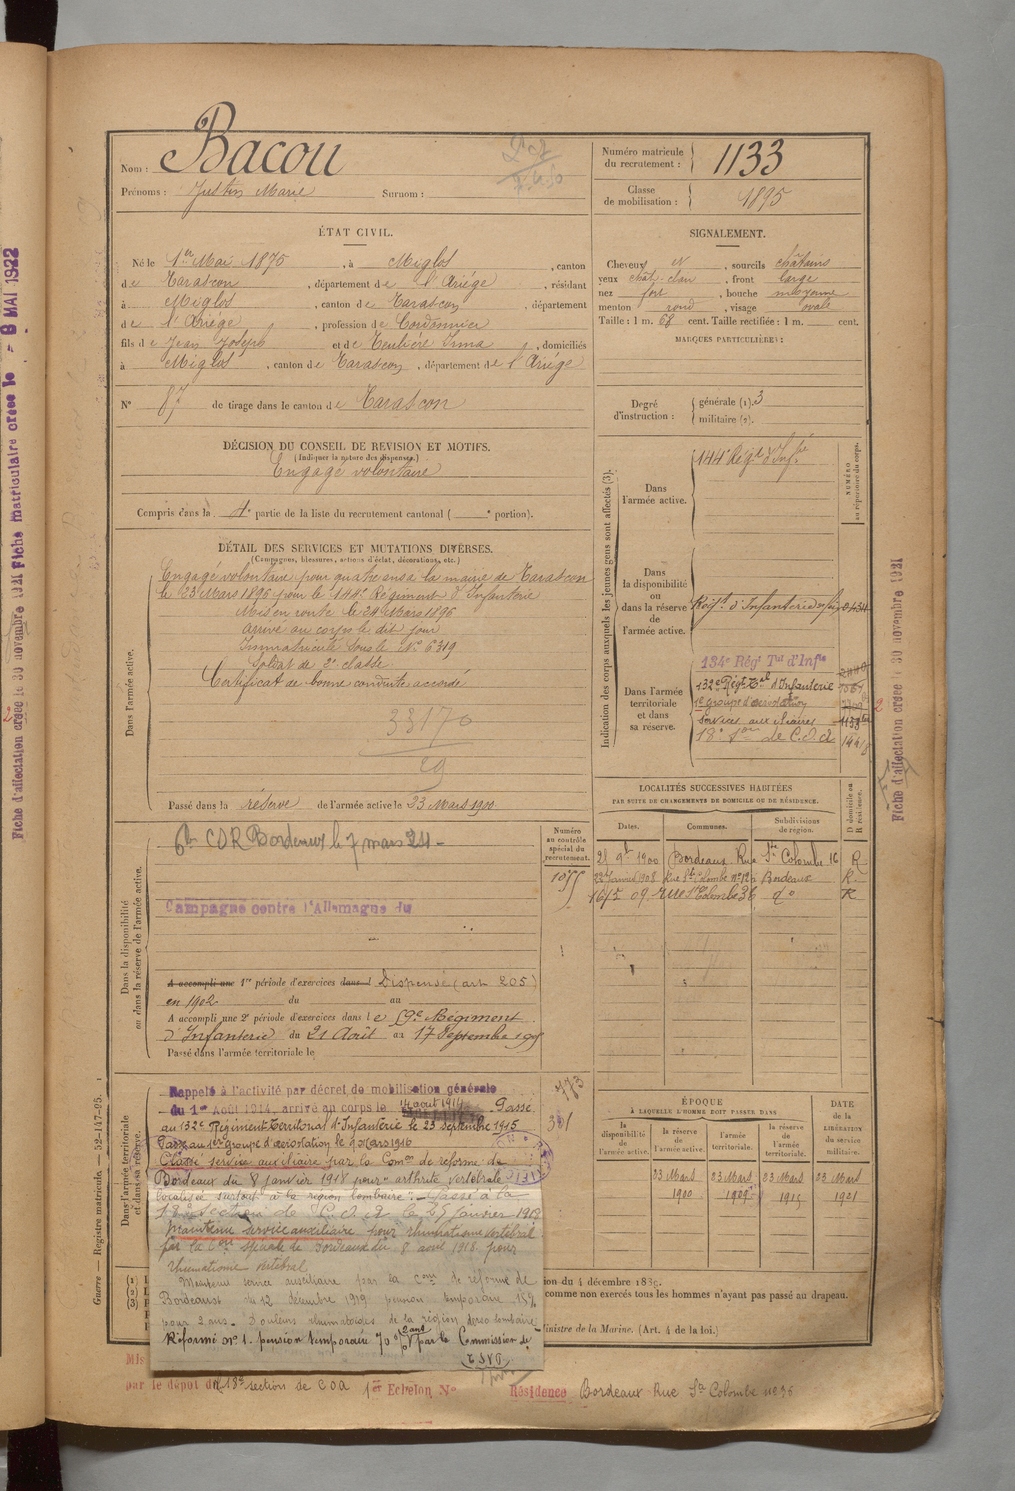 Nom : Bacou
Prénoms : Justin Marie Surnom :
Numéro matricule du recrutement : 1133
Classe de mobilisation : 1895
ÉTAT CIVIL.
Né le 1er Mai 1875, à Miglos, canton
de Tarascon, département de l'Ariège, résidant
à Miglos, canton de Tarascon, département
de l'Ariège, profession de Cordonnier
fils de Jean Joseph et de Teulière Irma, domiciliés
à Miglos, canton de Tarascon, département de l'Ariège
N° 87 de tirage dans le canton de Tarascon
SIGNALEMENT.
Cheveux N, sourcils châtains
yeux chât. clair, front large
nez fort, bouche moyenne
menton rond, visage ovale
Taille : 1 m. 68 cent. Taille rectifiée : 1 m. cent.
MARQUES PARTICULIÈRES :
Degré d'instruction : générale (1). 3
militaire (2).
DÉCISION DU CONSEIL DE REVISION ET MOTIFS.
(Indiquer la nature des dispenses.)
Engagé volontaire
Compris dans la 4e partie de la liste du recrutement cantonal ( e portion).
DÉTAIL DES SERVICES ET MUTATIONS DIVERSES.
(Campagnes, blessures, actions d'éclat, décorations, etc.)
Dans l'armée active.
Engagé volontaire pour quatre ans à la mairie de Tarascon
le 23 Mars 1896 pour le 144e Régiment d'Infanterie
Mis en route le 24 Mars 1896
Arrivé au corps le dit jour
Immatriculé sous le N° 6319
Soldat de 2e classe.
Certificat de bonne conduite accordé
33170
29
Passé dans la réserve de l'armée active le 23 Mars 1900
Indication des corps auxquels les jeunes gens sont affectés (3).
NUMÉRO au répertoire du corps.
Dans l'armée active.
144e Régt d'Infie
Dans la disponibilité ou dans la réserve de l'armée active.
Régt d'Infanterie
Dans l'armée territoriale et dans sa réserve.
134e Rég Tal d'Infie
132e Régt Tal d'Infanterie
1er groupe d'aérostation
Services auxiliaires
18e son de C.O.A
LOCALITÉS SUCCESSIVES HABITÉES
PAR SUITE DE CHANGEMENTS DE DOMICILE OU DE RÉSIDENCE.
Dates. Communes. Subdivisions de région. D domicile ou R résidence.
21 9bre 1900 Bordeaux Rue Ste Colombe 16 R
23 Janvier 1908 Rue Ste Colombe n° 12 Bordeaux R
16/5 09 rue Ste Colombe 36 do R
Dans la disponibilité ou dans la réserve de l'armée active.
Numéro au contrôle spécial du recrutement.
CDR Bordeaux le 7 mars 24
Campagne contre l'Allemagne du
A accompli une 1re période d'exercices dans l Dispensé (art. 205)
en 1902 du au
A accompli une 2e période d'exercices dans le 59e Régiment
d'Infanterie du 21 Août au 17 Septembre 1905
Passé dans l'armée territoriale le
Dans l'armée territoriale et dans sa réserve.
Rappelé à l'activité par décret de mobilisation générale
du 1er Août 1914, arrivé au corps le 14 août 1914 Passé
au 132e Régiment Territorial d'Infanterie le 23 septembre 1915
Passé au 1er groupe d'aérostation le 9 Mars 1916
Classé service auxiliaire par la Comon de réforme de
Bordeaux du 8 janvier 1918 pour "arthrite vertébrale
localisée surtout à la région lombaire". Passé à la
18e section de C.O.A le 25 Janvier 1918
Maintenu service auxiliaire pour rhumatisme vertébral
par la Con spéciale de Bordeaux du 8 avril 1918 pour
rhumatisme vertébral
Maintenu service auxiliaire par la Com de réforme de
Bordeaux du 12 décembre 1919 pension temporaire 15%
pour 2 ans. Douleurs rhumatoïdes de la région dorso lombaire
Réformé n° 1. pension temporaire 70% 2 ans par la Commission de
773
381
ÉPOQUE
À LAQUELLE L'HOMME DOIT PASSER DANS
la disponibilité de l'armée active. la réserve de l'armée active. l'armée territoriale. la réserve de l'armée territoriale. DATE de la LIBÉRATION du service militaire.
23 Mars 1900 23 Mars 1909 23 Mars 1915 23 Mars 1921
comme non exercés tous les hommes n'ayant pas passé au drapeau.
Ministre de la Marine. (Art. 4 de la loi.)
par le dépôt du 18e section de COA 1er Echelon N° Résidence Bordeaux Rue Ste Colombe n° 36
Guerre — Registre matricule. — 52-147-95.
Fiche d'affectation créée le 30 novembre 1921
Fiche matriculaire créée le - 8 MAI 1922
Fiche d'affectation créée le 30 novembre 1921